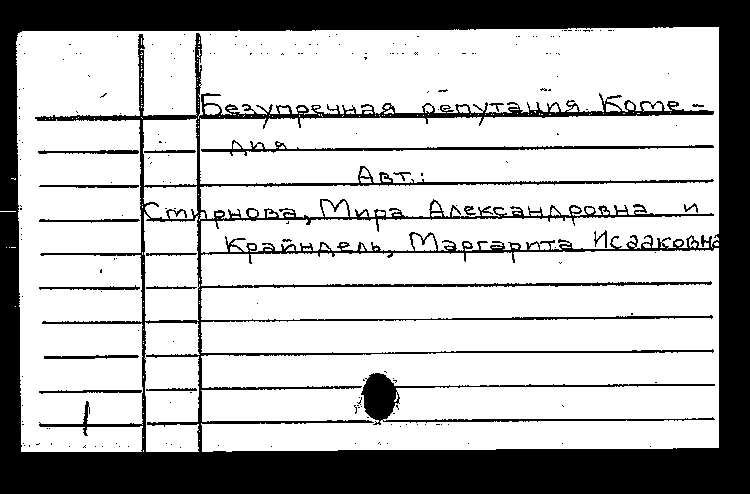 Безупречная репутация. Коме-
дия.
Авт.:
Смирнова, Мира Александровна и
Крайндель, Маргарита Исааковна